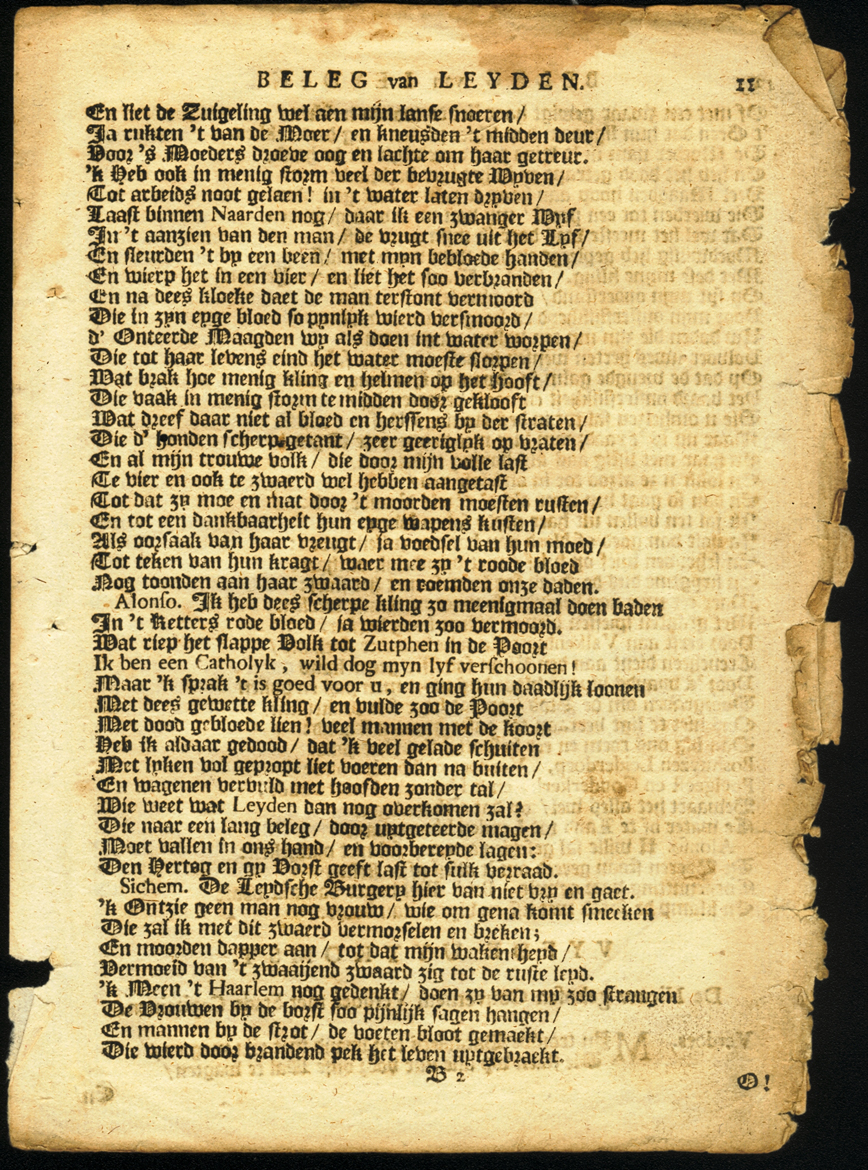 BELEG van LEYDEN. 11
En liet de Zuigeling wel aen mijn lanse snoeren/
Ja rukten 't van de Moer/ en kneusden 't midden deur/
Voor 's Moeders droeve oog en lachte om haar getreur.
'k Heb ook in menig storm veel der bevrugte Wyven/
Tot arbeids noot gelaen! in 't water laten dryven/
Laast binnen Naarden nog/ daar ik een zwanger Wyf
In 't aanzien van den man/ de vrugt snee uit het Lyf/
En sleurden 't by een been/ met myn bebloede handen/
En wierp het in een vier/ en liet het soo verbranden/
En na dees kloeke daet de man terstont vermoord
Die in zyn eyge bloed so pynlyk wierd versmoord/
d' Onteerde Maagden wy als doen int water worpen/
Die tot haar levens eind het water moeste slorpen/
Wat brak hoe menig kling en helmen op het hooft/
Die vaak in menig storm te midden door geklooft
Wat dreef daar niet al bloed en herssens by der straten/
Die d' honden scherp getant/ zeer geeriglyk op vraten/
En al mijn trouwe volk/ die door mijn volle last
Te vier en ook te zwaerd wel hebben aangetast
Tot dat zy moe en mat door 't moorden moesten rusten/
En tot een dankbaarheit hun eyge wapens kusten/
Als oorsaak van haar vreugt/ ja voedsel van hun moed/
Tot teken van hun kragt/ waer mee zy 't roode bloed
Nog toonden aan haar zwaard/ en roemden onze daden.
Alonso. Ik heb dees scherpe kling zo meenigmaal doen baden
In 't Ketters rode bloed/ ja wierden zoo vermoord.
Wat riep het slappe Volk tot Zutphen in de Poort
Ik ben een Catholyk, wild dog myn lyf verschoonen!
Maar 'k sprak 't is goed voor u, en ging hun daadlijk loonen
Met dees gewette kling/ en vulde zoo de Poort
Met dood gebloede lien! veel mannen met de koort
Heb ik aldaar gedood/ dat 'k veel gelade schuiten
Met lyken vol gepropt liet voeren dan na buiten/
En wagenen vervuld met hoofden zonder tal/
Wie weet wat Leyden dan nog overkomen zal?
Die naar een lang beleg/ door uytgeteerde magen/
Moet vallen in ons hand/ en voorbereyde lagen:
Den Hertog en gy Vorst geeft last tot sulk verraad.
Sichem. De Leydsche Burgery hier van niet vry en gaet.
'k Ontzie geen man nog vrouw/ wie om gena komt smeeken
Die zal ik met dit zwaerd vermorselen en breken;
En moorden dapper aan/ tot dat mijn wakentheyd/
Vermoeid van 't zwaaijend zwaard zig tot de ruste leyd.
'k Meen 't Haarlem nog gedenkt/ doen zy van my zoo strangen
De Vrouwen by de borst soo pijnlijk sagen hangen/
En mannen by de strot/ de voeten bloot gemaekt/
Die wierd door brandend pek het leven uytgebraekt.
B 2 O!